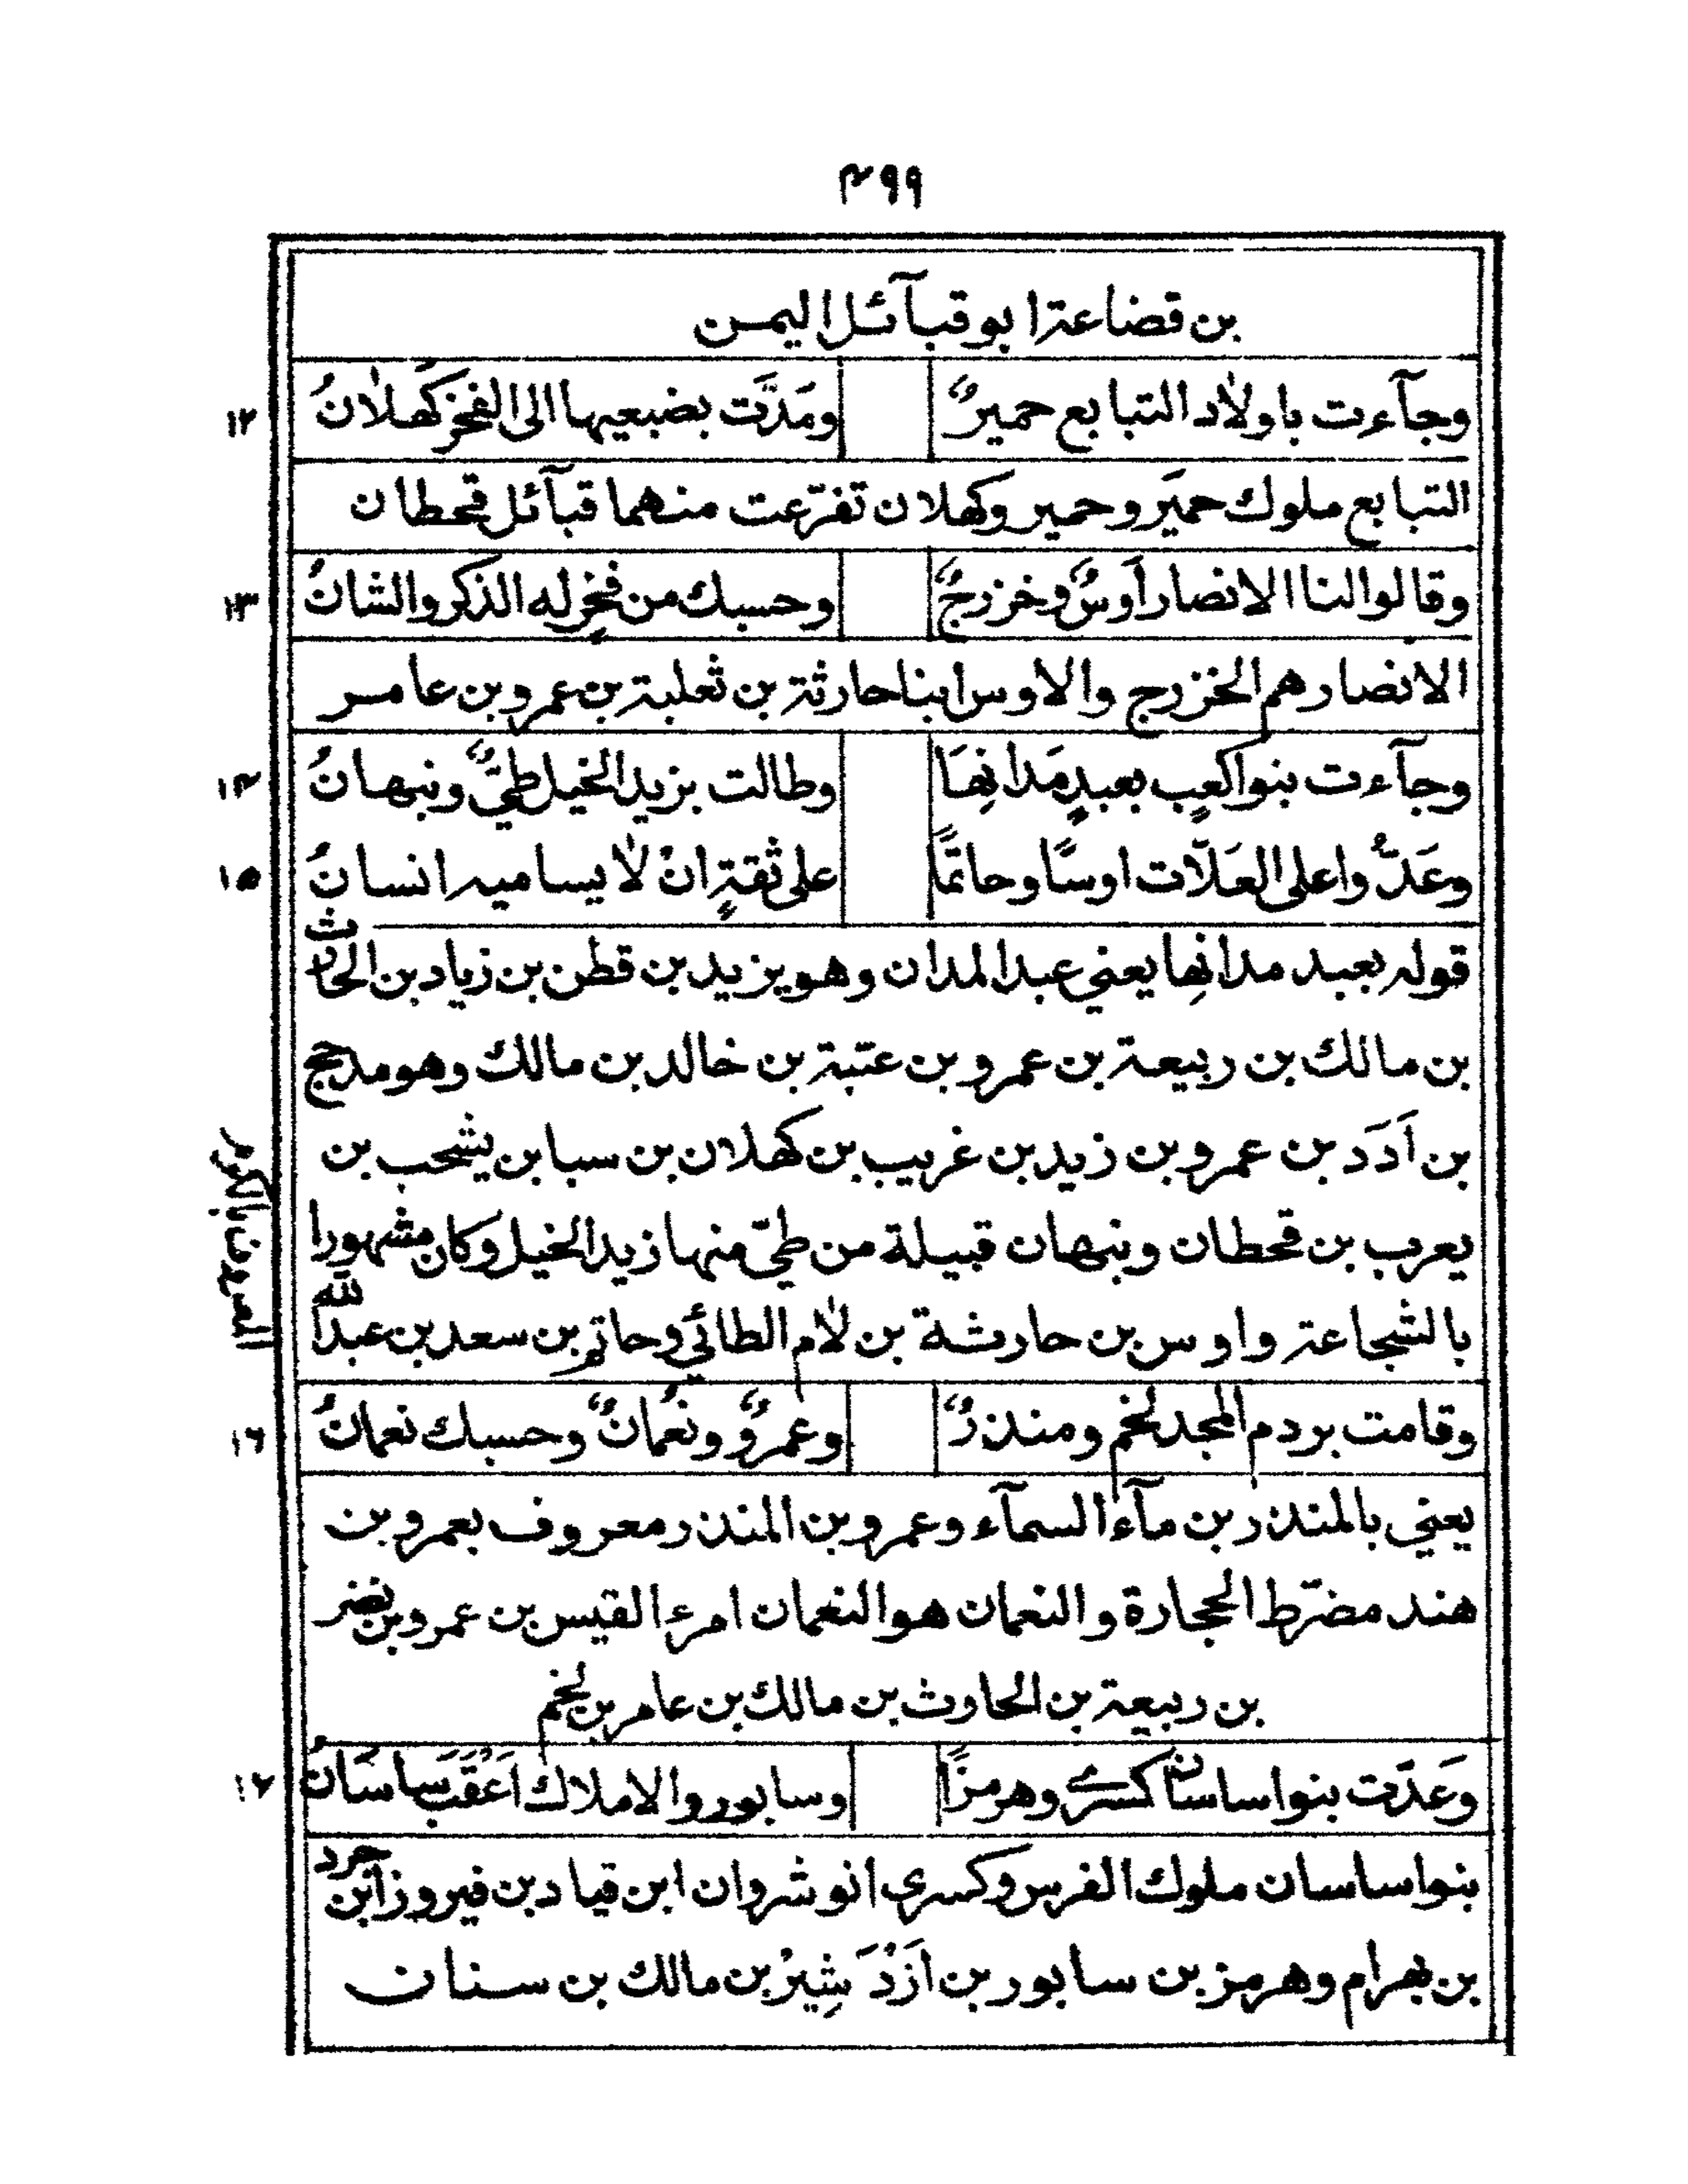 ٤٩٩
بن قضاعة ابو قبآئل اليمن
وجآءت باولاد التبابع حميرٌ ومَدَّت بضبعيها الى الفخر كَهلانُ ١٢
التبابع ملوك حميَر وحمير وكهلان تفرّعت منهما قبآئل قحطان
وقالوا لنا الانصار اَوسٌ وخزرجٌ وحسبك من فخرٍ له الذكر والشانُ ١٣
الانصار هم الخزرج والاوس ابنا حارثة بن ثعلبة بن عمرو بن عامر
وجآءت بنوا كعبٍ بعبدِ مَدانِهَا وطالت بزيد الخيل طيٌّ ونبهانُ ١٤
وعَدُّوا على العَلّات اوسًا وحاتمًا على ثقةٍ انْ لا يساميه انسانُ ١٥
قوله بعبد مدانِها يعني عبد المدان وهو يزيد بن قطن بن زياد بن الحارث
بن مالك بن ربيعة بن عمرو بن عتبة بن خالد بن مالك وهو مدحج
بن اَدَد بن عمرو بن زيد بن غريب بن كهلان بن سبا بن يشحب بن
يعرب بن قحطان ونبهان قبيلة من طيّ منها زيد الخيل وكان مشهورا
بالشجاعة واوس بن حارثة بن لام الطائي وحاتم بن سعد بن عبد الله
المعروف بالكرم
وقامت بردم المجد لخم ومنذرٌ وعمروٌ ونُعمانٌ وحسبك نعمانُ ١٦
يعني بالمنذر بن مآء السمآء وعمرو بن المنذر معروف بعمرو بن
هند مضرّط الحجارة والنعمان هو النعمان امرء القيس بن عمرو بن نضر
بن ربيعة بن الحاوث بن مالك بن عامر بن لخم
وعَدّت بنوا ساسان كسرے وهرمزًا وسابور والاملاك اَعْقَبَ ساسَانُ ١٧
بنوا ساسان ملوك الفرس وكسرى انو شروان ابن قياد بن فيروز ابن جرد
بن بهرام وهرمز بن سابور بن اَزْدَ شِيرْ بن مالك بن سنان